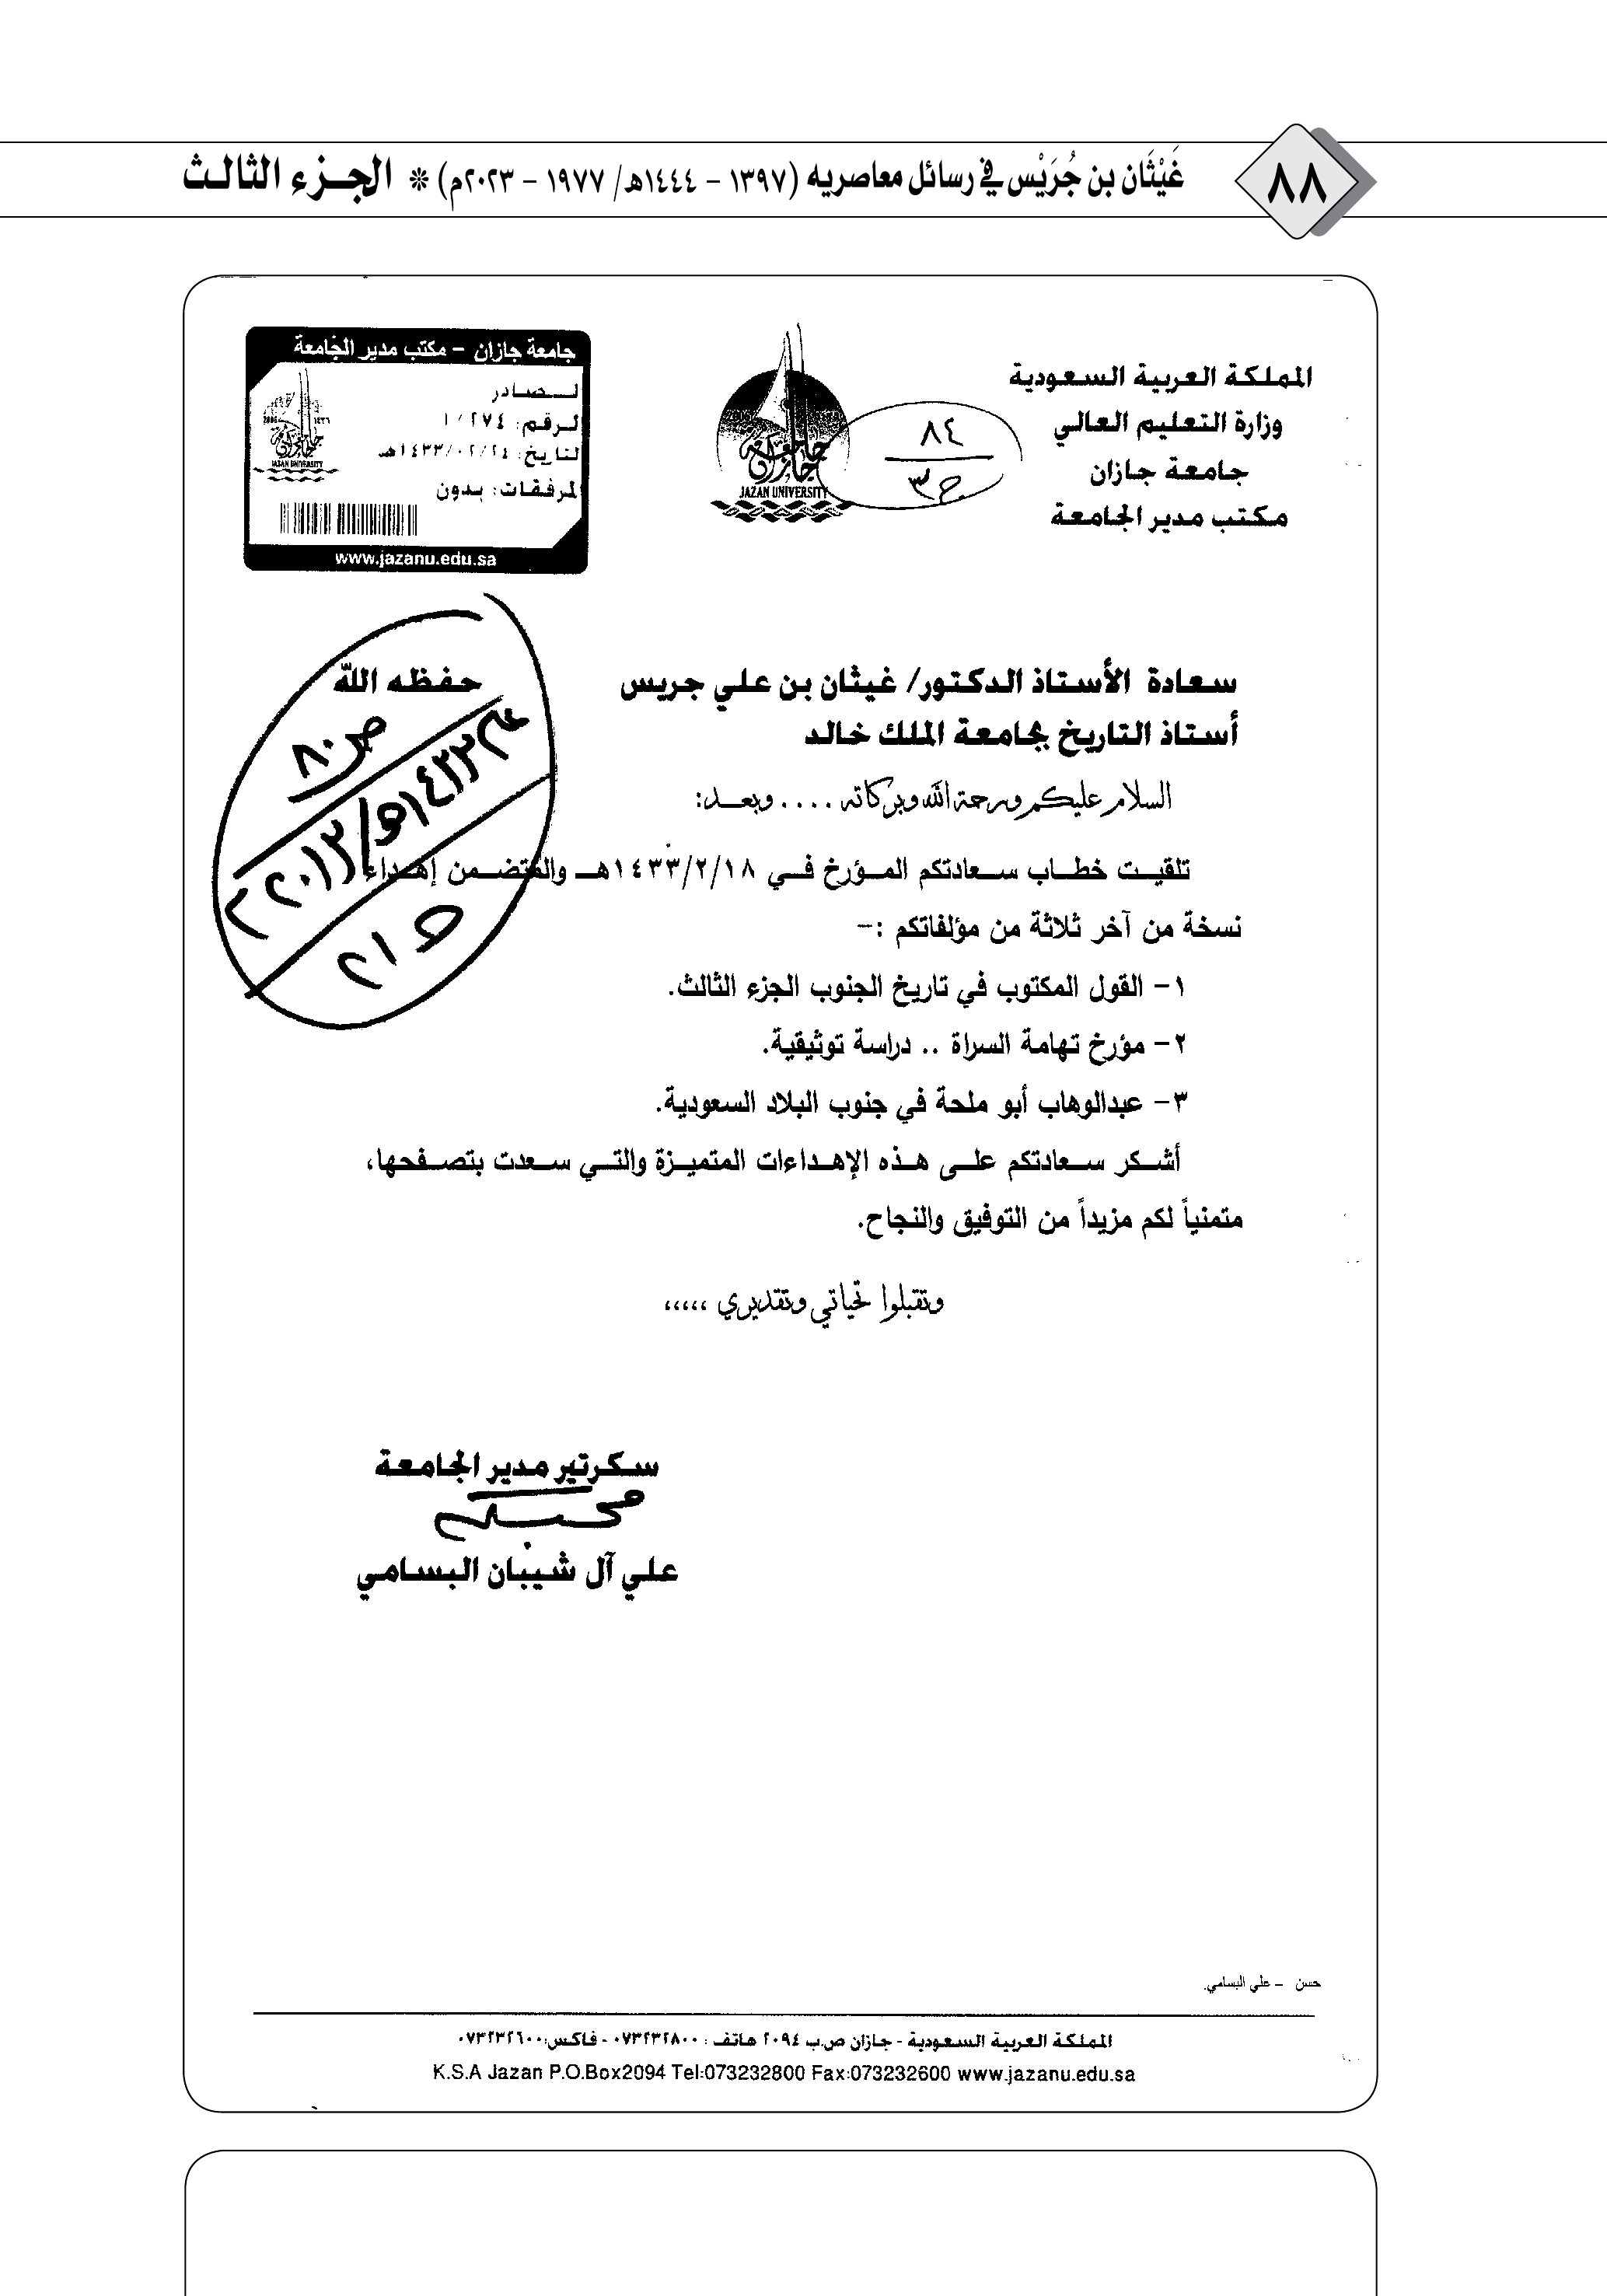 غَيْثَان بن جُرَيْس في رسائل معاصريه (١٣٩٧ - ١٤٤٤هـ/ ١٩٧٧ - ٢٠٢٣م) * الجـزء الثالـث
٨٨
المملكة العربية السعودية
وزارة التعليم العالي
جامعة جازان
مكتب مدير الجامعة
٨٤
ج٣
جامعة جازان
JAZAN UNIVERSITY
جامعة جازان - مكتب مدير الجامعة
لـــصـادر
لـرقـم: ٢٧٤ / ١
لتاريخ: ١٤٣٣/٠٢/٢٤هـ
لمرفقات: بدون
JAZAN UNIVERSITY
www.jazanu.edu.sa
سعادة الأستاذ الدكتور/ غيثان بن علي جريس حفظه الله
أستاذ التاريخ بجامعة الملك خالد
ص٨٠
١٤٣٣هـ/٢٠١٢م
السلام عليكم ورحمة الله وبركاته .... وبعد:
تلقيـت خطـاب سـعادتكم المـؤرخ فـي ١٤٣٣/٢/١٨هـ والمتضـمن إهـداء
نسخة من آخر ثلاثة من مؤلفاتكم :-
١- القول المكتوب في تاريخ الجنوب الجزء الثالث.
٢- مؤرخ تهامة السراة .. دراسة توثيقية.
٣- عبدالوهاب أبو ملحة في جنوب البلاد السعودية.
أشـكر سـعادتكم علـى هـذه الإهـداءات المتميـزة والتـي سـعدت بتصـفحها،
متمنياً لكم مزيداً من التوفيق والنجاح.
وتقبلوا تحياتي وتقديري ،،،،،
سكرتير مدير الجامعة
علي آل شيبان البسامي
حسن - علي البسامي.
المملكة العربية السعودية - جازان ص.ب ٢٠٩٤ هاتف : ٠٧٣٢٣٢٨٠٠ - فاكس:٠٧٣٢٣٢٦٠٠
K.S.A Jazan P.O.Box2094 Tel:073232800 Fax:073232600 www.jazanu.edu.sa